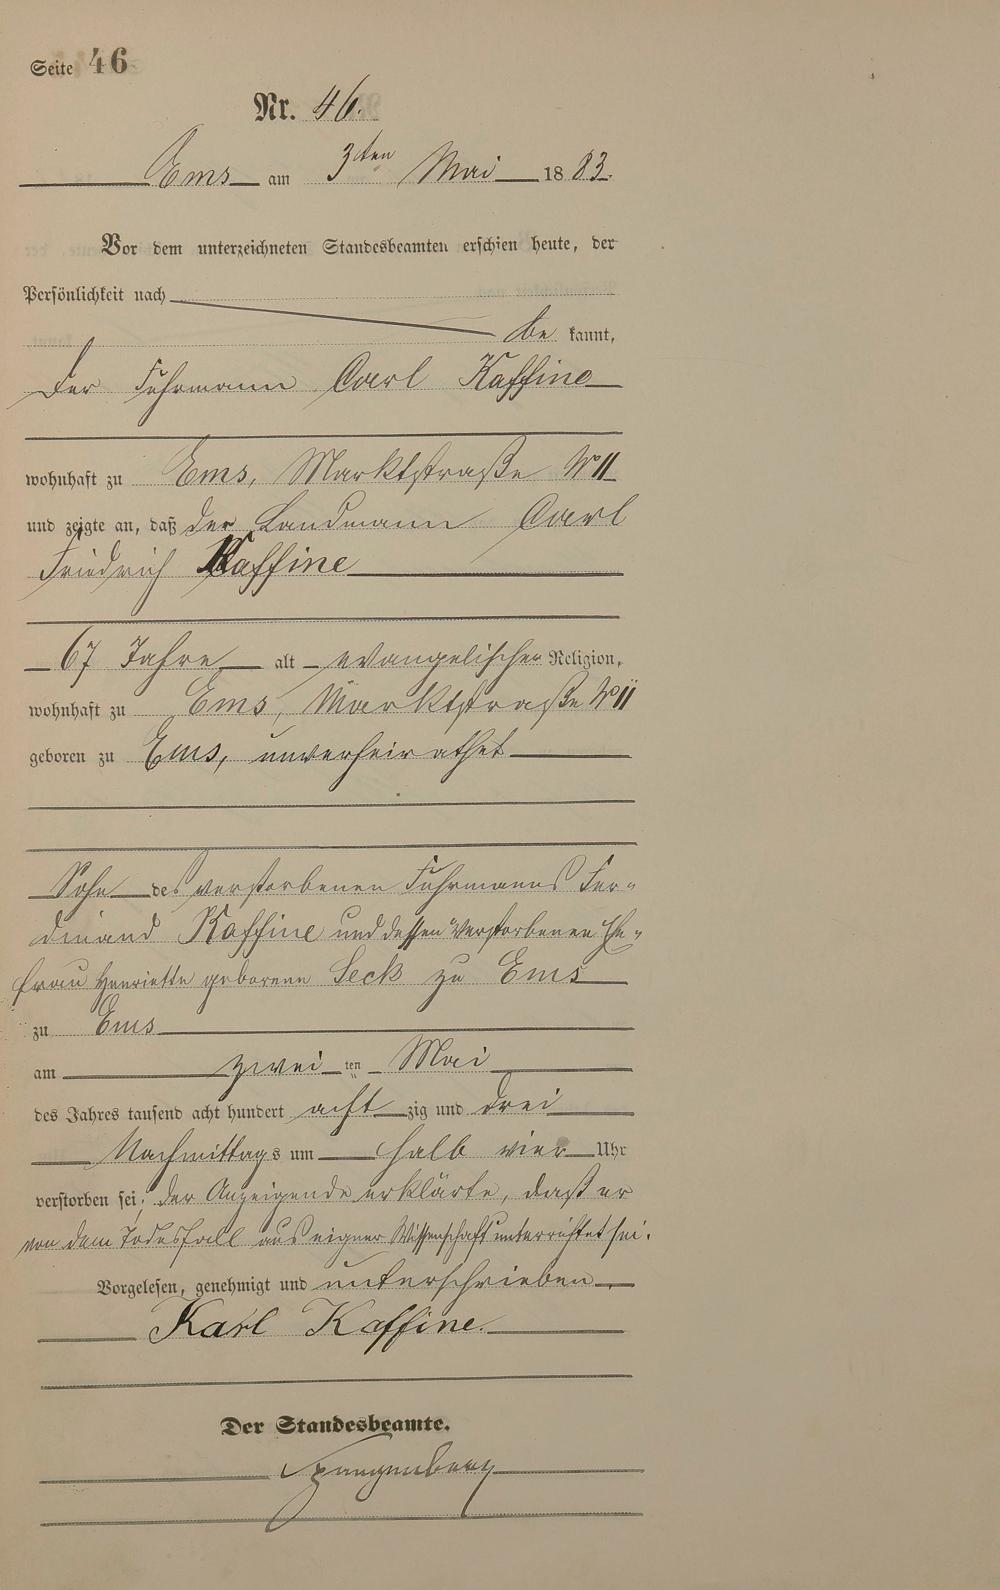 Seite 46
Nr. 46.
Ems am 3ten Mai 1883.
Vor dem unterzeichneten Standesbeamten erschien heute, der
Persönlichkeit nach
be kannt,
der Fuhrmann Carl Kaffine
wohnhaft zu Ems, Marktstraße No 11
und zeigte an, daß der Landmann Carl
Friedrich Kaffine
67 Jahre alt evangelischer Religion,
wohnhaft zu Ems, Marktstraße No 11
geboren zu Ems, unverheirathet
Sohn des verstorbenen Fuhrmanns Fer=
dinand Kaffine und dessen verstorbenen Ehe=
frau Henriette geborene Seck zu Ems
zu Ems
am zwei ten Mai
des Jahres tausend acht hundert acht zig und drei
Nachmittags um halb vier Uhr
verstorben sei; der Anzeigende erklärte, daß er
von dem Todesfall aus eigner Wissenschaft unterrichtet sei.
Vorgelesen, genehmigt und unterschrieben
Karl Kaffine.
Der Standesbeamte.